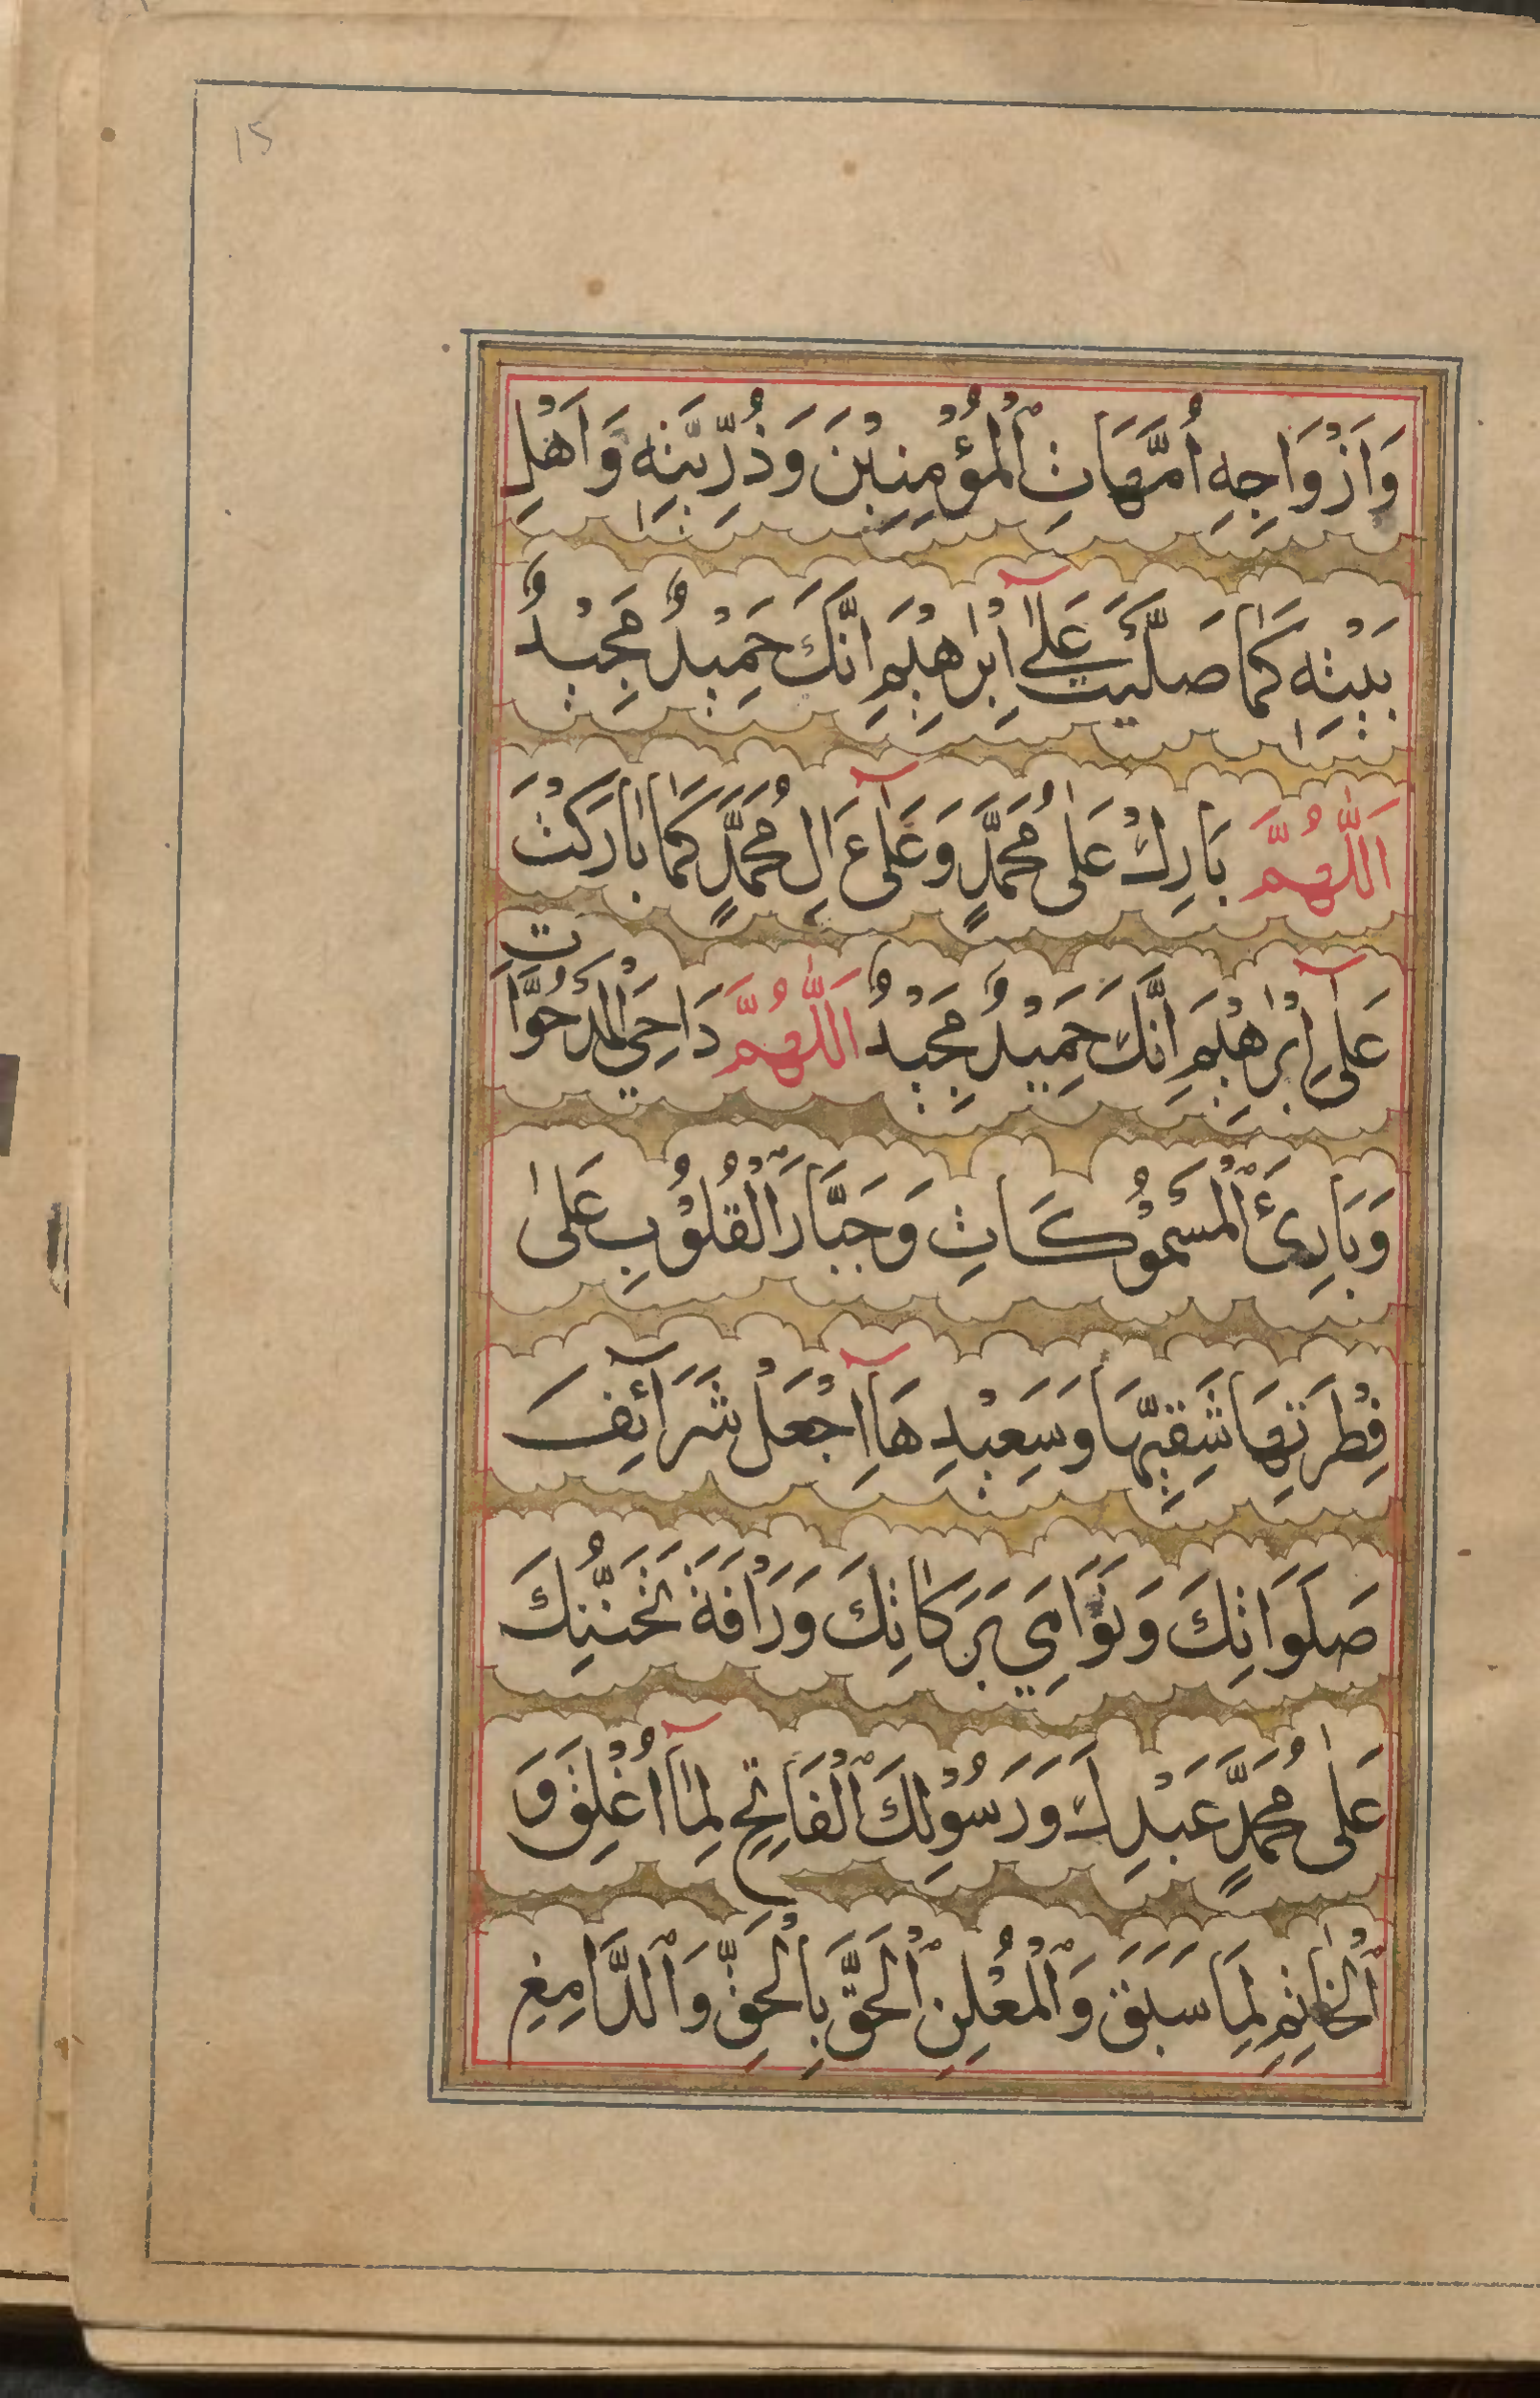 15
وَاَزْوَاجِهٖ اُمَّهَاتِ الْمُؤْمِنِيْنَ وَذُرِّيَّتِهٖ وَاَهْلِ
بَيْتِهٖ كَمَا صَلَّيْتَ عَلٰٓى اِبْرٰهِيْمَ اِنَّكَ حَمِيْدٌ مَجِيْدٌ
اَللّٰهُمَّ بَارِكْ عَلٰى مُحَمَّدٍ وَعَلٰٓى اٰلِ مُحَمَّدٍ كَمَا بَارَكْتَ
عَلٰٓى اِبْرٰهِيْمَ اِنَّكَ حَمِيْدٌ مَجِيْدٌ اَللّٰهُمَّ دَاحِيَ الْمَدْحُوَّاتِ
وَبَارِئَ الْمَسْمُوْكَاتِ وَجَبَّارَ الْقُلُوْبِ عَلٰى
فِطْرَتِهَا شَقِيِّهَا وَسَعِيْدِهَا اِجْعَلْ شَرَآئِفَ
صَلَوَاتِكَ وَنَوَامِيَ بَرَكَاتِكَ وَرَاْفَةَ تَحَنُّنِكَ
عَلٰى مُحَمَّدٍ عَبْدِكَ وَرَسُوْلِكَ الْفَاتِحِ لِمَآ اُغْلِقَ وَ
الْخَاتِمِ لِمَا سَبَقَ وَالْمُعْلِنِ الْحَقَّ بِالْحَقِّ وَالدَّامِغِ